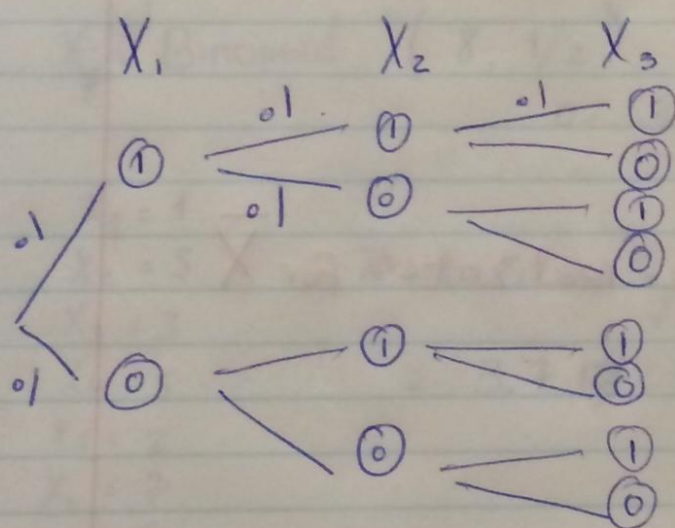 X₁ X₂ X₃
.1 .1 1
1 1 0
.1 0 1
.1 0
1 1
.1 0 0
0 1
0